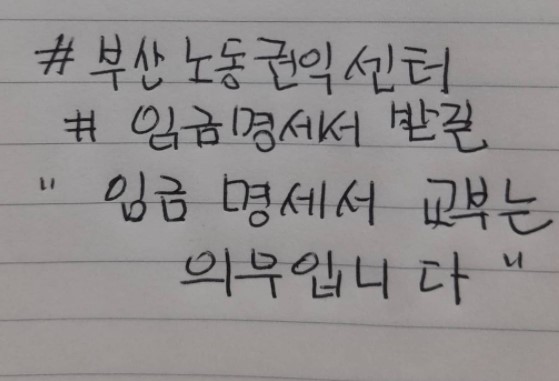 # 부산노동권익센터
# 임금명세서 발급
" 임금 명세서 교부는
의무입니다 "